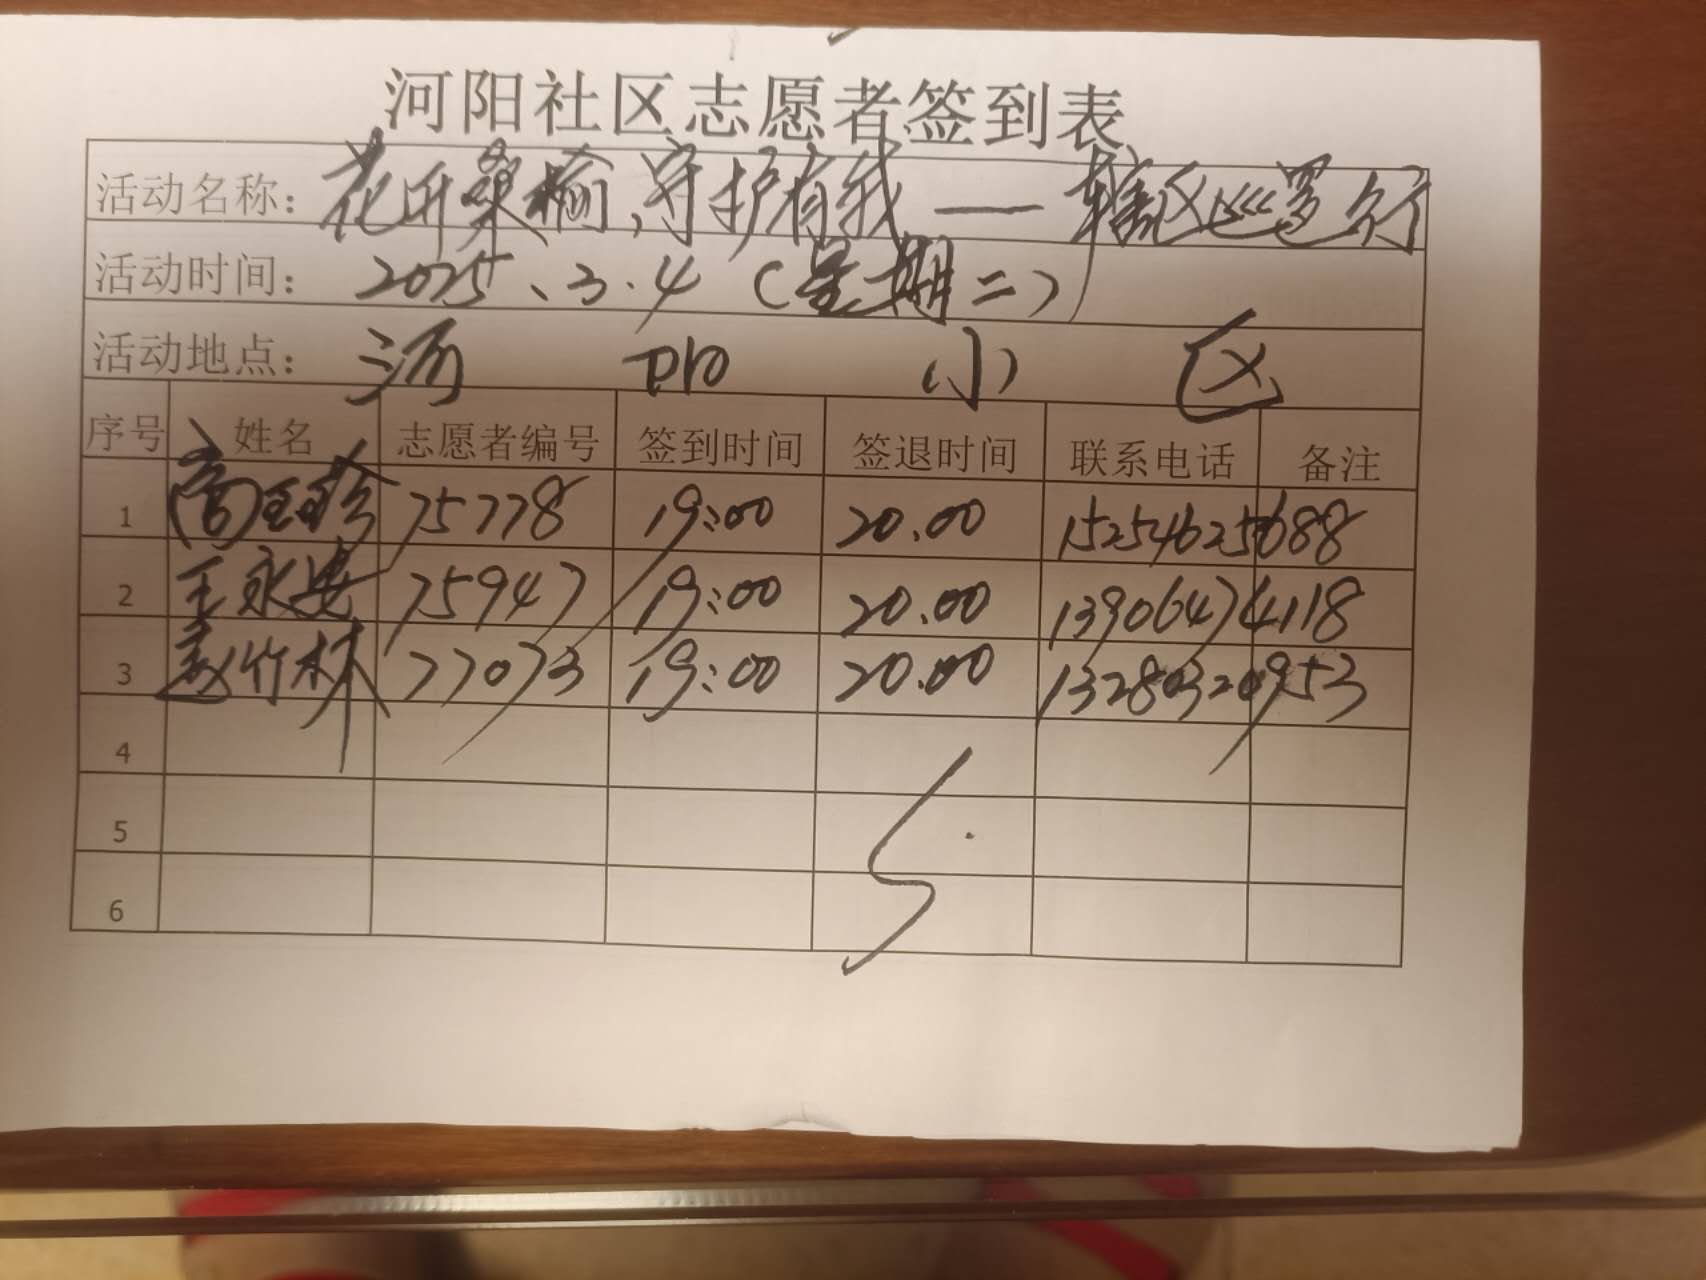 河阳社区志愿者签到表
活动名称：花开桑榆，守护有我——辖区巡逻行
活动时间：2025、3.4（星期二）
活动地点：河阳小区
序号 姓名 志愿者编号 签到时间 签退时间 联系电话 备注
1 高玉珍 75778 19:00 20.00 15254625688
2 王永安 75947 19:00 20.00 13906474118
3 赵竹林 77073 19:00 20.00 13280320953
4
5
6